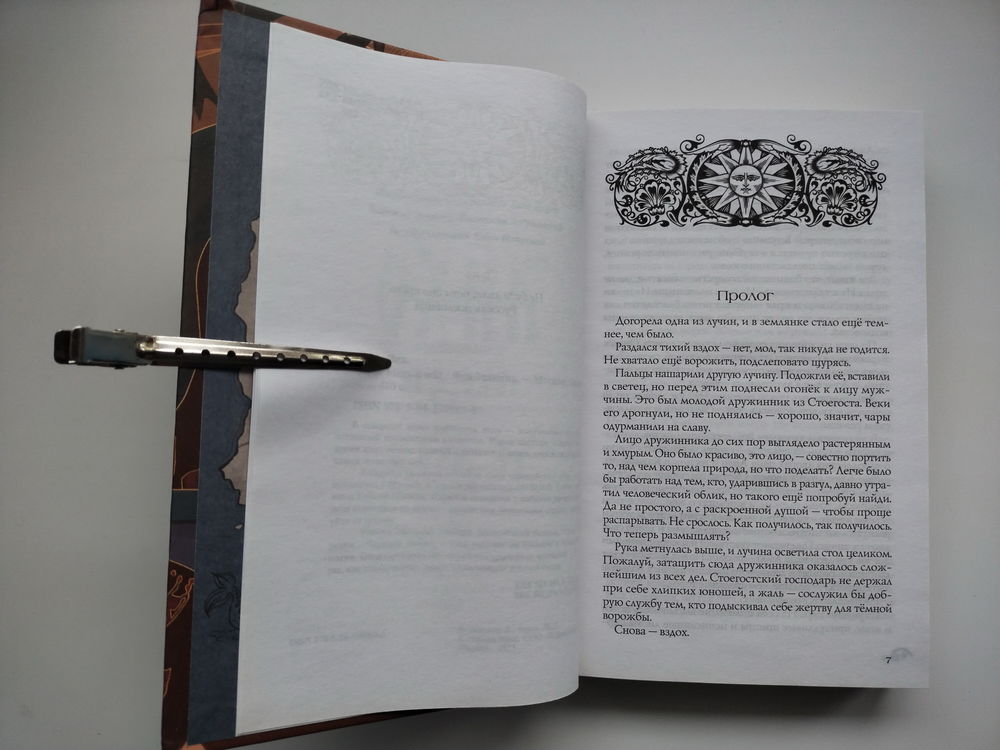 Пролог
Догорела одна из лучин, и в землянке стало ещё тем-
нее, чем было.
Раздался тихий вздох — нет, мол, так никуда не годится.
Не хватало ещё ворожить, подслеповато щурясь.
Пальцы нашарили другую лучину. Подожгли её, вставили
в светец, но перед этим поднесли огонёк к лицу муж-
чины. Это был молодой дружинник из Стоегоста. Веки
его дрогнули, но не поднялись — хорошо, значит, чары
одурманили на славу.
Лицо дружинника до сих пор выглядело растерянным
и хмурым. Оно было красиво, это лицо, — совестно портить
то, над чем корпела природа, но что поделать? Легче было
бы работать над тем, кто, ударившись в разгул, давно утра-
тил человеческий облик, но такого ещё попробуй найди.
Да не простого, а с раскроенной душой — чтобы проще
распарывать. Не срослось. Как получилось, так получилось.
Что теперь размышлять?
Рука метнулась выше, и лучина осветила стол целиком.
Пожалуй, затащить сюда дружинника оказалось слож-
нейшим из всех дел. Стоегостский господарь не держал
при себе хлипких юношей, а жаль — сослужил бы доб-
рую службу тем, кто подыскивал себе жертву для тёмной
ворожбы.
Снова — вздох.
7